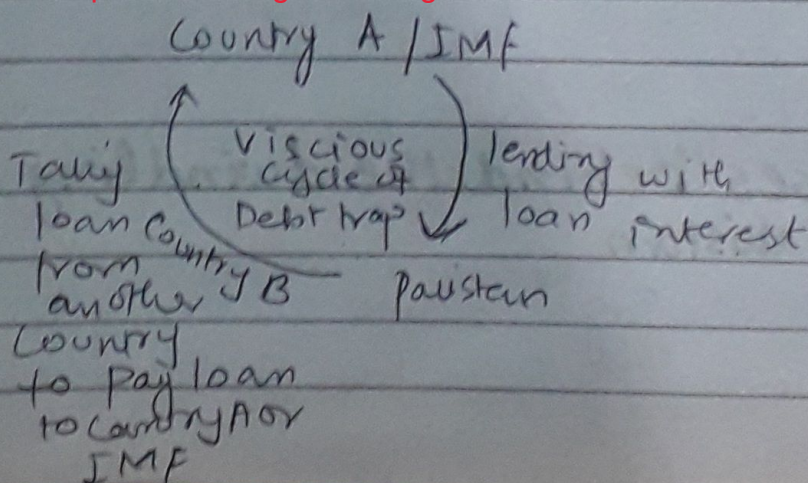 Country A / IMF
Viscious
Cycle of
Debt trap
lending with
loan interest
Taking
loan
from
another
Country
to pay loan
to Country A or
IMF
Country B
Paustan